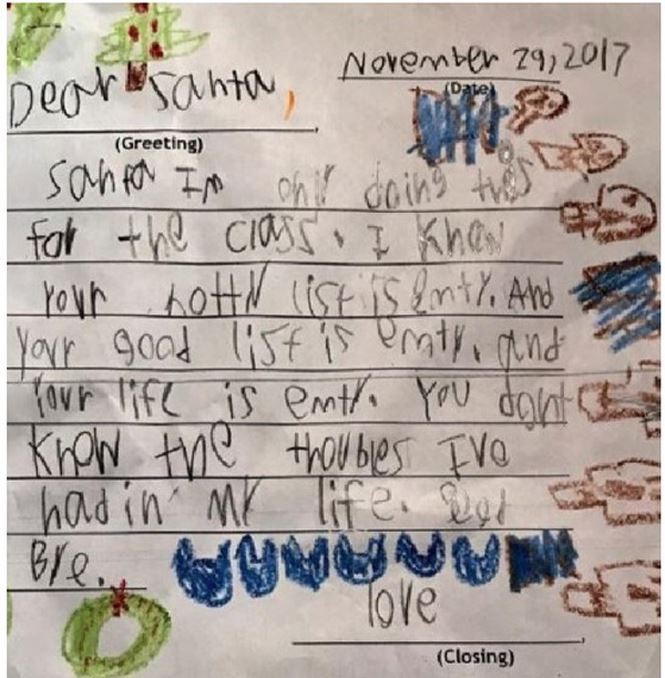 November 29, 2017
(Date)
Dear Santa,
(Greeting)
Santa Im only doing this
for the class. I know
Your notty list is emty. And
your good list is emty. and
Your life is emty. You dont
know the troubles Ive
had in my life. Good
Bye.
love
(Closing)